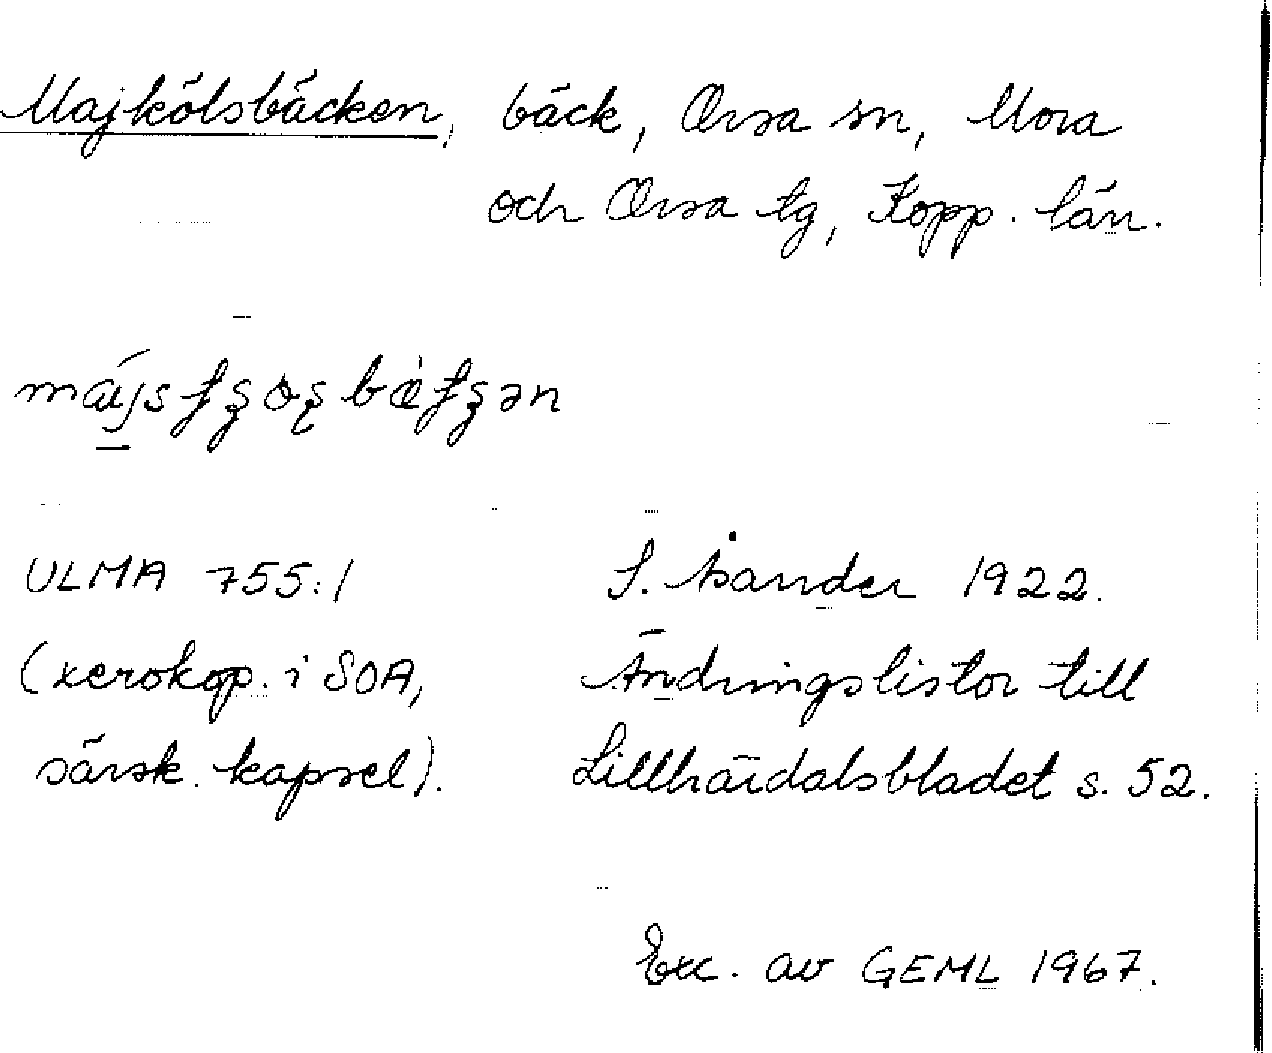 Majkölsbäcken, bäck, Orsa sn, Mora
och Orsa tg, Kopp. län.
ULMA 755:1
S. Åsander 1922.
(xerokop. i SOA,
Ändringslistor till
särsk. kapsel).
Lillhärdalsbladet s. 52.
Exc. av GEML 1967.